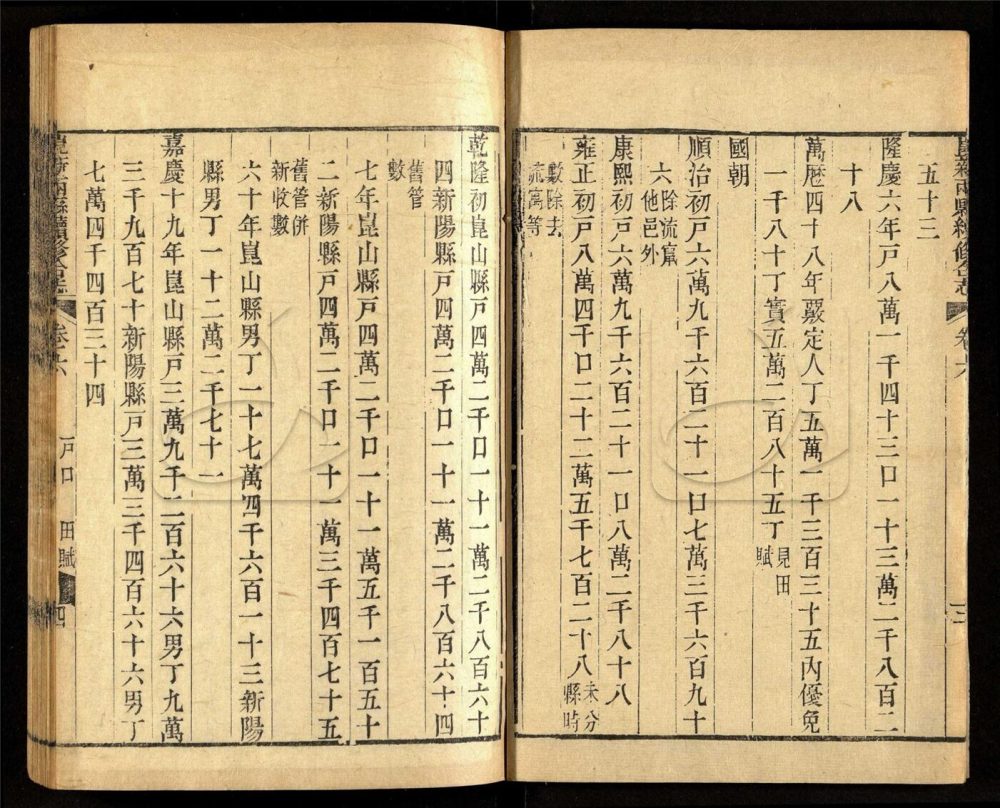 崑新兩縣續修合志 卷六 三
五十三
隆慶六年戶八萬一千四十三口一十三萬二千八百二
十八
萬曆四十八年覈定人丁五萬一千三百三十五內優免
一千八十丁實五萬二百八十五丁見田賦
國朝
順治初戶六萬九千六百二十一口七萬三千六百九十
六除流寓他邑外
康熙初戶六萬九千六百二十一口八萬二千八十八
雍正初戶八萬四千口二十二萬五千七百二十八未分縣時
數除去流寓等
乾隆初崑山縣戶四萬二千口一十一萬二千八百六十
四新陽縣戶四萬二千口一十一萬二千八百六十四
舊管數
七年崑山縣戶四萬二千口一十一萬五千一百五十
二新陽縣戶四萬二千口一十一萬三千四百七十五
舊管併新收數
六十年崑山縣男丁一十七萬四千六百一十三新陽
縣男丁一十二萬二千七十一
嘉慶十九年崑山縣戶三萬九千二百六十六男丁九萬
三千九百七十新陽縣戶三萬三千四百六十六男丁
七萬四千四百三十四
崑新兩縣續修合志 卷六 戶口 田賦 四